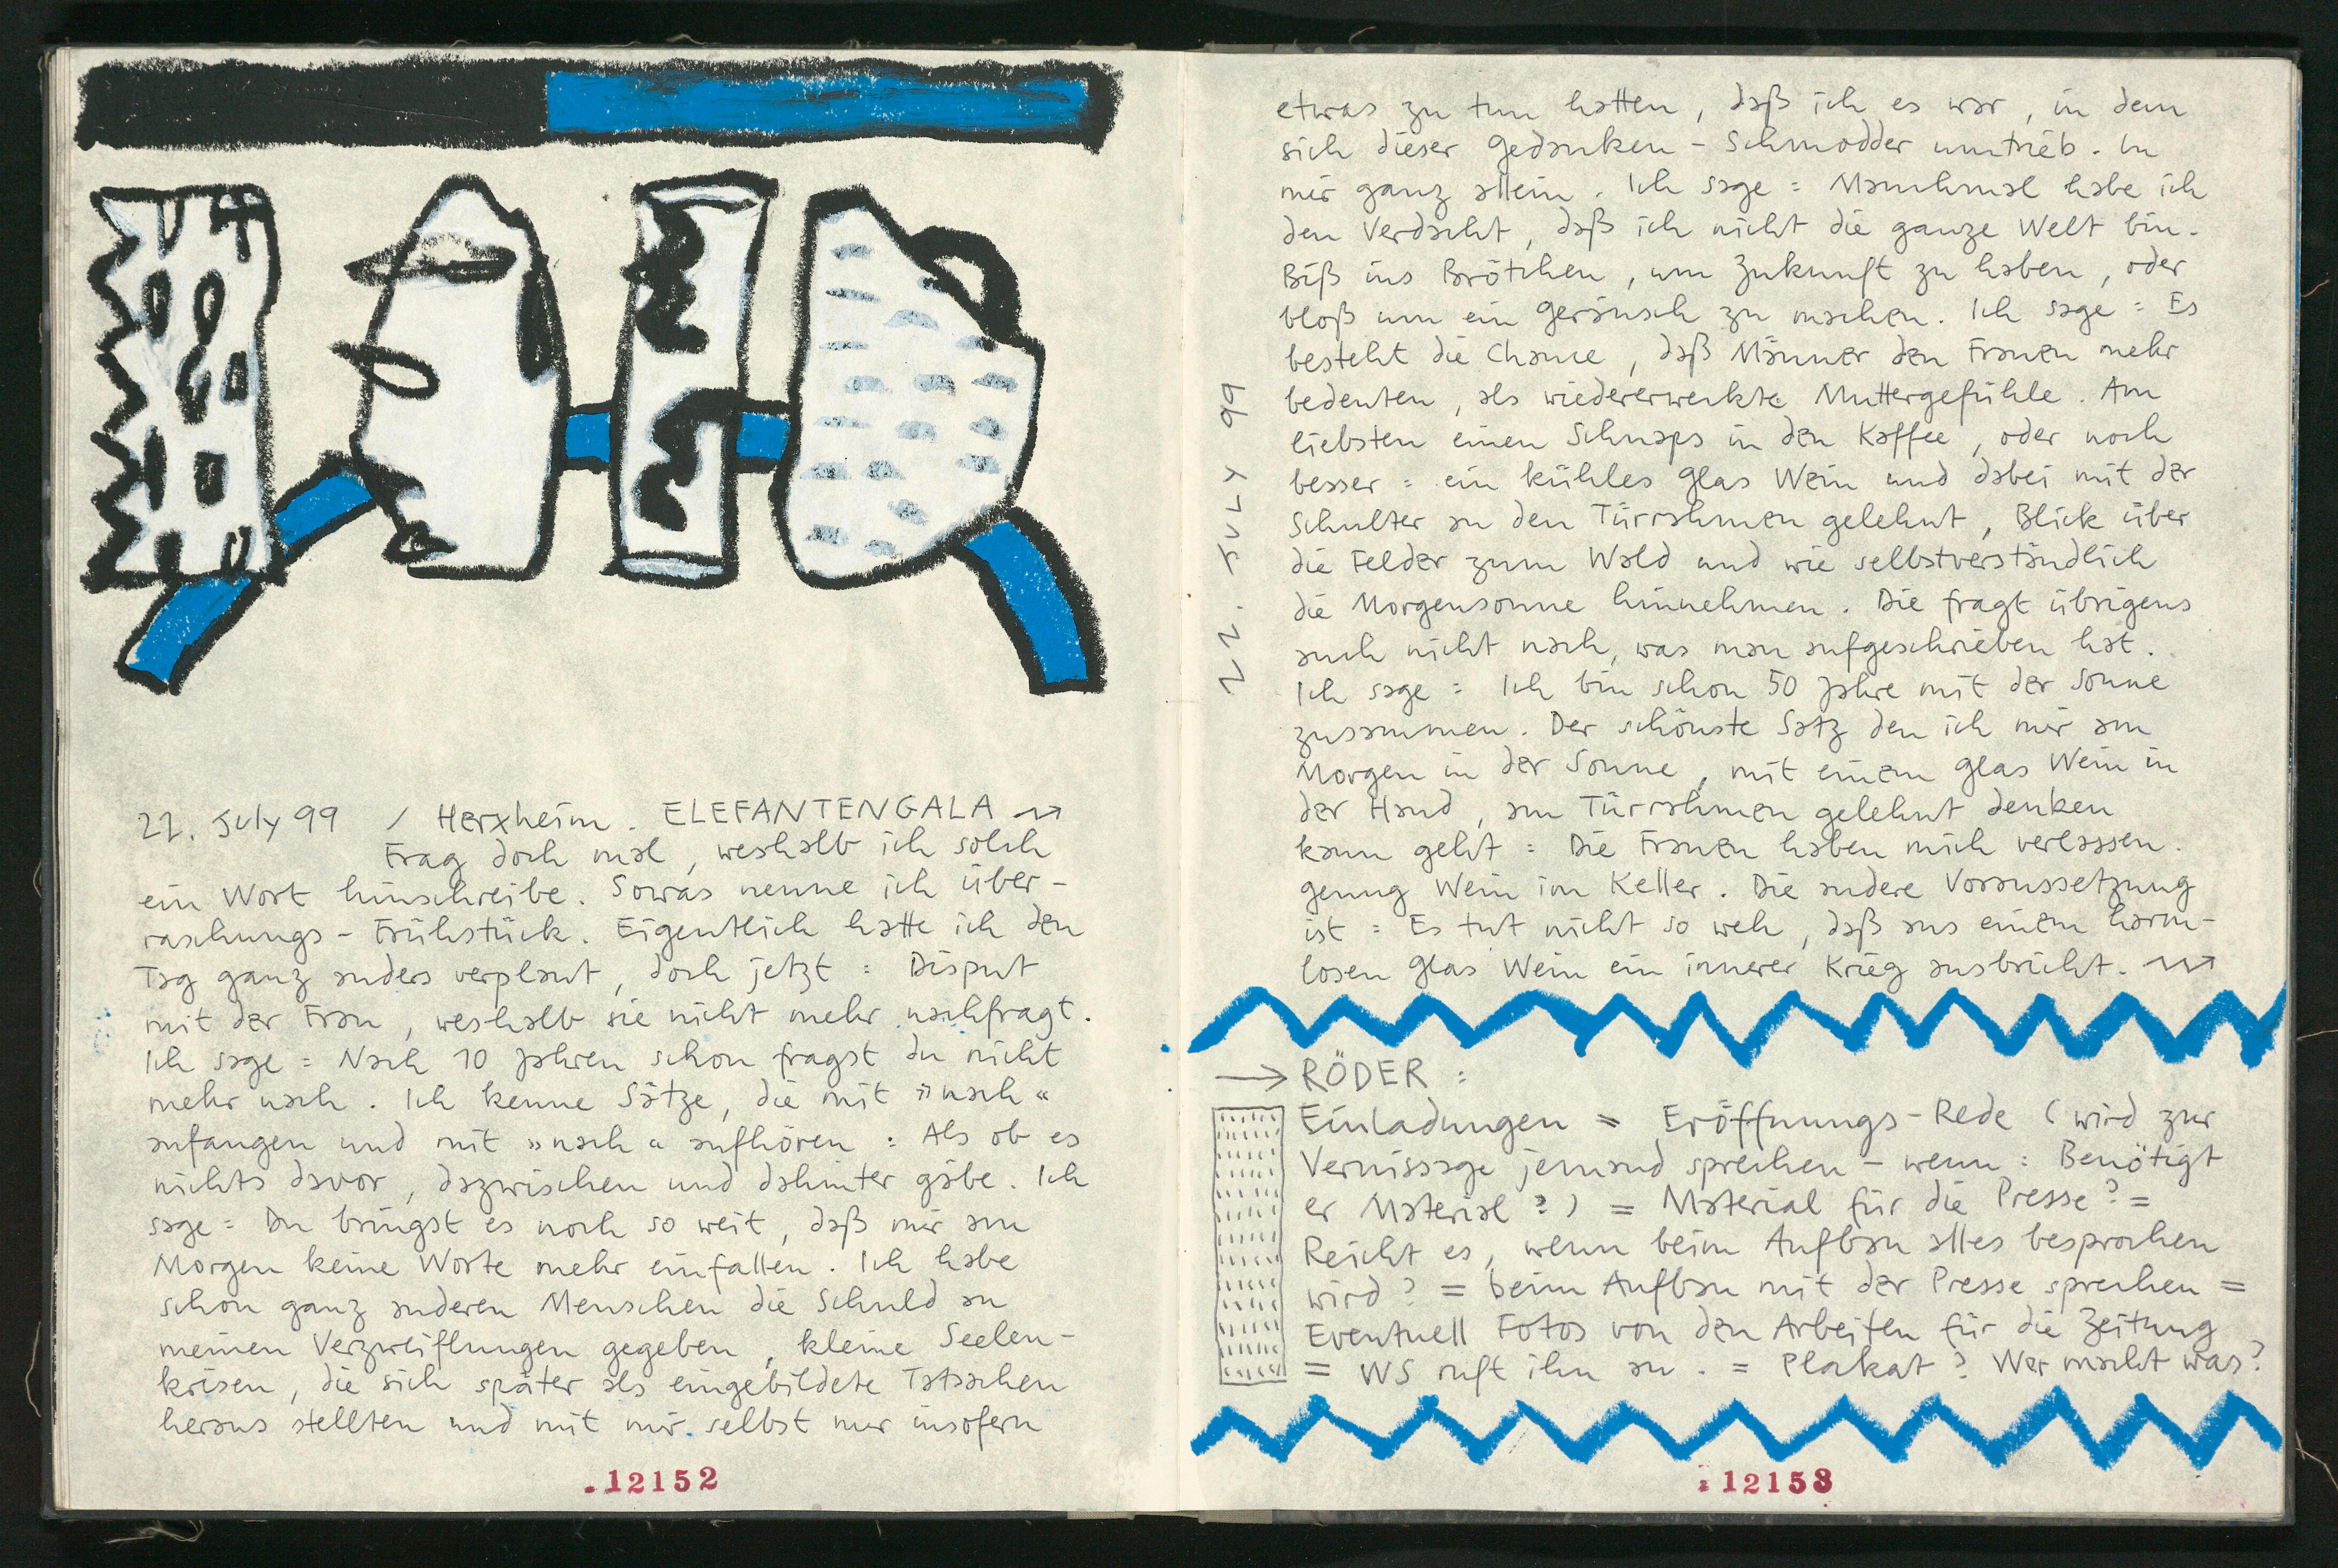 22. July 99 / Herxheim. ELEFANTENGALA
Frag doch mal, weshalb ich solch
ein Wort hinschreibe. Sowas nenne ich über-
raschungs-Frühstück. Eigentlich hatte ich den
Tag ganz anders verplant, doch jetzt = Disput
mit der Frau, weshalb sie nicht mehr nachfragt.
Ich sage = Nach 10 Jahren schon fragst du nicht
mehr nach. Ich kenne Sätze, die mit »nach«
anfangen und mit »nach« aufhören = Als ob es
nichts davor, dazwischen und dahinter gäbe. Ich
sage = Du bringst es noch so weit, daß mir am
Morgen keine Worte mehr einfallen. Ich habe
schon ganz anderen Menschen die Schuld an
meinen Verzweiflungen gegeben, kleine Seelen-
krisen, die sich später als eingebildete Tatsachen
heraus stellten und mit mir selbst nur insofern
.12152
22. JULY 99
etwas zu tun hatten, daß ich es war, in dem
sich dieser Gedanken-Schmodder umtrieb. In
mir ganz allein. Ich sage = Manchmal habe ich
den Verdacht, daß ich nicht die ganze Welt bin.
Biß ins Brötchen, um Zukunft zu haben, oder
bloß um ein Geräusch zu machen. Ich sage = Es
besteht die Chance, daß Männer den Frauen mehr
bedeuten, als wiedererweckte Muttergefühle. Am
liebsten einen Schnaps in den Kaffee, oder noch
besser = ein kühles Glas Wein und dabei mit der
Schulter an den Türrahmen gelehnt, Blick über
die Felder zum Wald und wie selbstverständlich
die Morgensonne hinnehmen. Die fragt übrigens
auch nicht nach, was man aufgeschrieben hat.
Ich sage = Ich bin schon 50 Jahre mit der Sonne
zusammen. Der schönste Satz den ich mir am
Morgen in der Sonne, mit einem Glas Wein in
der Hand, am Türrahmen gelehnt denken
kann geht = Die Frauen haben mich verlassen.
genug Wein im Keller. Die andere Voraussetzung
ist = Es tut nicht so weh, daß aus einem harm-
losen Glas Wein ein innerer Krieg ausbricht.
→ RÖDER :
Einladungen = Eröffnungs-Rede (wird zur
Vernissage jemand sprechen - wenn : Benötigt
er Material ?) = Material für die Presse ? =
Reicht es, wenn beim Aufbau alles besprochen
wird ? = beim Aufbau mit der Presse sprechen =
Eventuell Fotos von den Arbeiten für die Zeitung
= WS ruft ihn an . = Plakat ? Wer macht was ?
12153